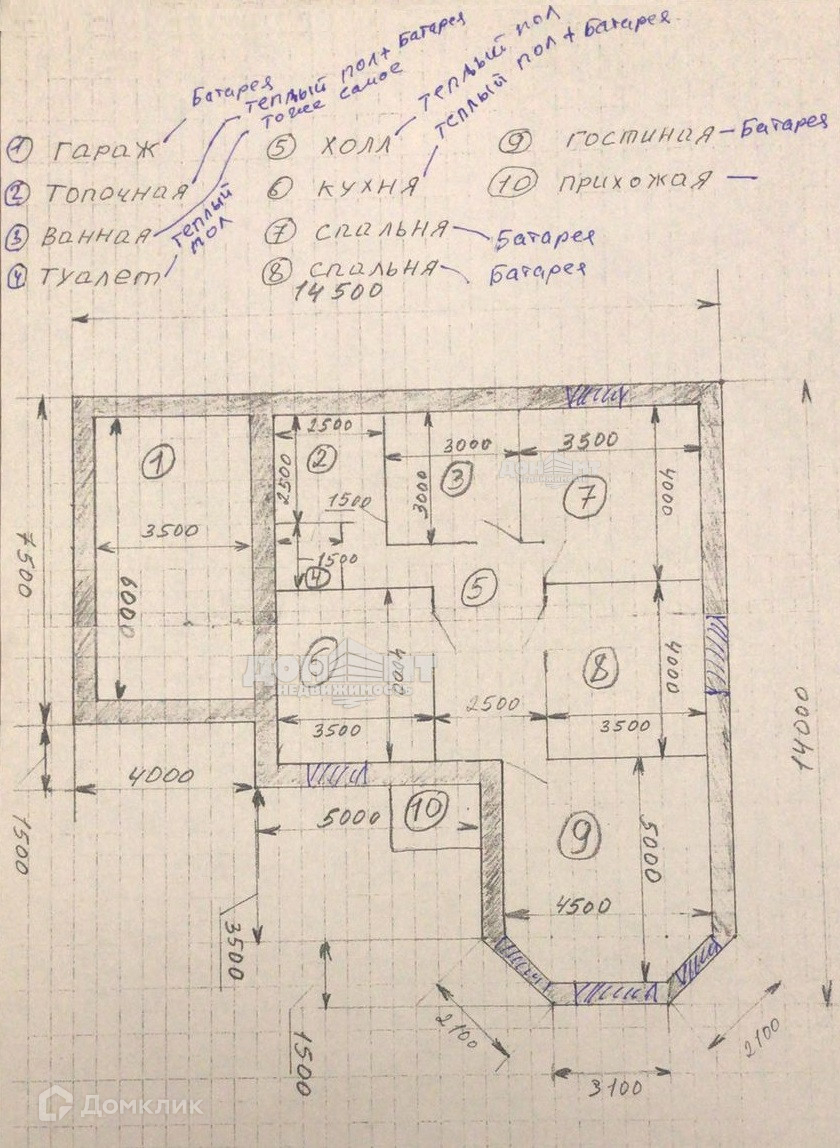 Батарея
теплый пол + Батарея
тоже самое
теплый пол
теплый пол + Батарея
1 гараж
2 топочная
3 ванная
4 туалет
теплый
пол
5 холл
6 кухня
7 спальня - Батарея
8 спальня - Батарея
9 гостиная - Батарея
10 прихожая -
14500
7500
1
3500
6000
2500
2
2500
1500
1500
4
3000
3
3000
3500
7
4000
5
6
4000
3500
2500
8
4000
3500
ДОМ МТ
НЕДВИЖИМОСТЬ
14000
4000
1500
5000
10
3500
9
5000
4500
1500
2100
2100
3100
Домклик